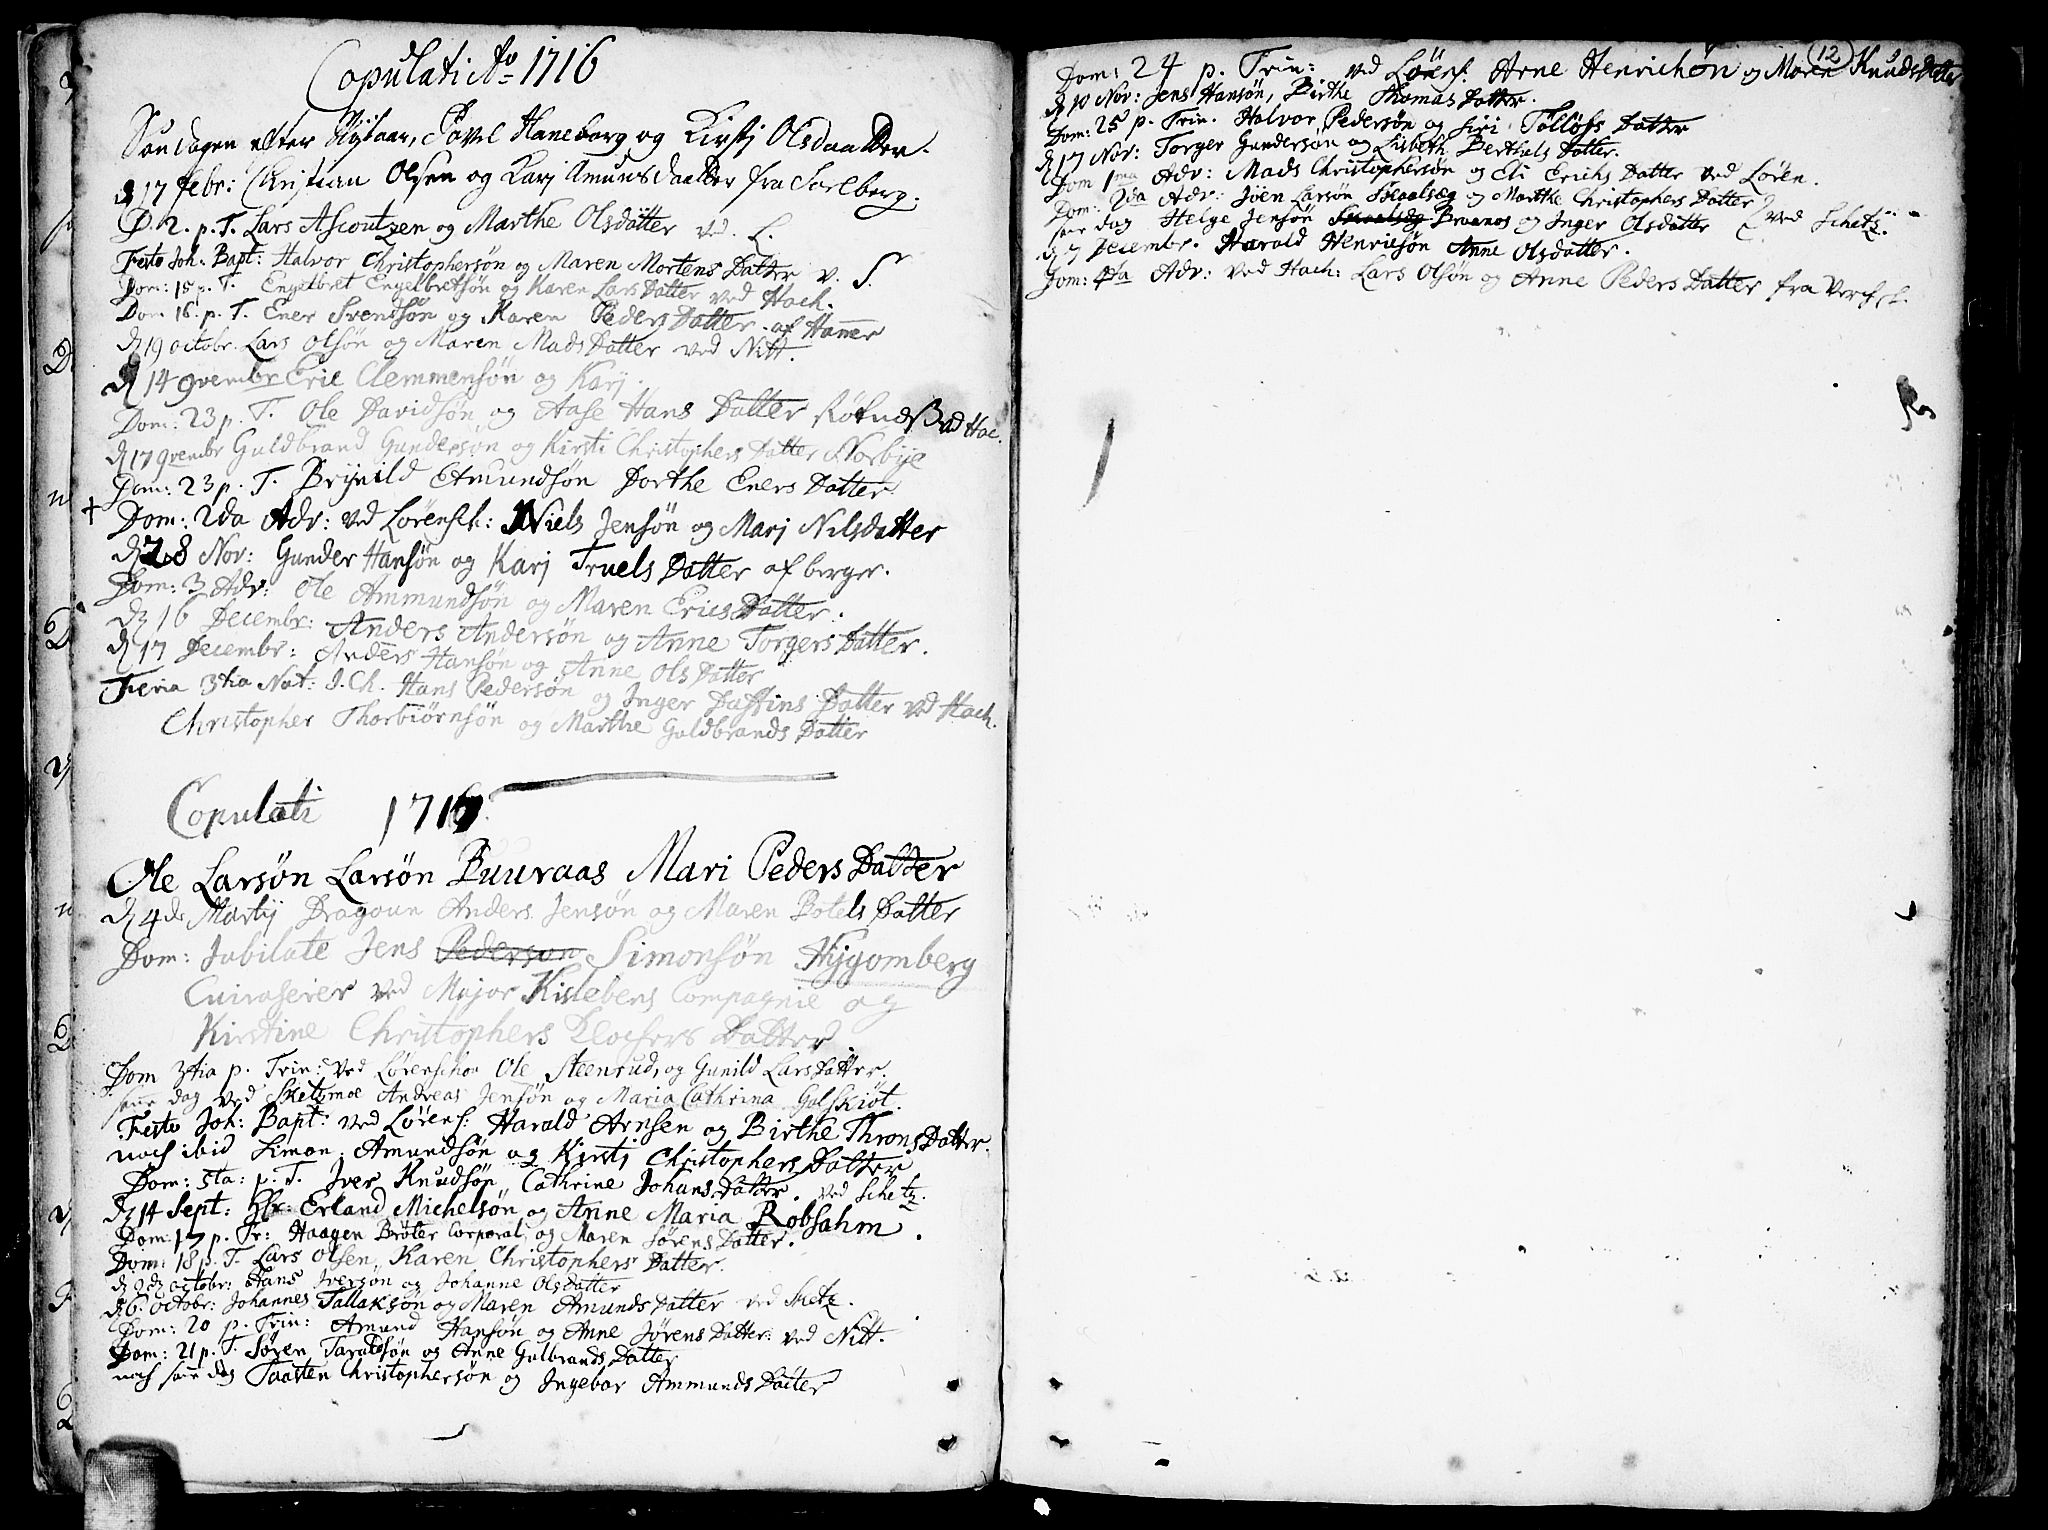 Copulati Ao 1716
Søndagen efter Nytaar, Povel Haneborg og Kirstj Olsdaatter.
d 17 febr: Christian Olsen og Karj Amunsdaatter fra Farlberg.
D. 2. p. T. Lars Ascoutzen og Marthe Olsdatter ved. L.
Festo Joh. Bapt: Halvor Christophersøn og Maren Mortens Datter v. S.
Dom: 15 p. T. Engelbret Engelbretsøn og Karen Lars Datter ved Hach.
Dom 16. p. T. Ener Svendsøn og Karen Peders Datter. af Haner
d 19 octobr. Lars Olsøn og Maren Mads Datter ved Nitt.
d 14 9vembr Eric Clemmensøn og Karj.
Dom: 23 p. T. Ole Davidsøn og Aase Hans Datter Røtnæs ved Hac.
d 17 9vembr Guldbrand Gundersøn og Kirsti Christophers Datter Norbye
Dom: 23 p. T. Brynild Amundsøn Dorthe Eners Datter
+ Dom: 2da Adv: ved Lørensk: Niels Jensøn og Marj Nilsdatter
d 28 Nov: Gunder Hansøn og Karj Truels Datter af berger.
Dom: 3 Adv: Ole Ammundsøn og Maren Erics Datter.
d 16 Decembr: Anders Andersøn og Anne Torgers Datter.
d 17 Decembr: Anders Hansøn og Anne Ols Datter
Feria 3tia Nat: J. Ch. Hans Pedersøn og Inger Dastins Datter ved Hach.
Christopher Thorbiørnsøn og Marthe Guldbrands Datter
Copulati 1717
Ole Larsøn Larsøn Buuraas Mari Peders Datter
d 4de Martij Dragoun Anders Jensøn og Maren Botels Datter
Dom: Jubilate Jens Pederson Simonsøn Hygomberg
Cuiraserer ved Major Kislebens Compagnie og
Kirstine Christophers Klochers Datter
Dom 3tia p. Trin: ved Lørenschou Ole Steenrud, og Gunild Lars Datter.
sam dag ved Sketzmoe Andreas Jensøn og Maria Cathrina Gulskiøt.
Festo Joh: Bapt: ved Lørens: Harald Arnsen og Birthe Throns Datter.
noch ibid Simon Amundsøn og Kirsti Christophers Datter
Dom: 5ta: p. T. Iver Knudsøn Cathrine Johans Datter. ved Schetz.
d 14 Sept: Hr: Erland Michelsøn og Anne Maria Robsahm.
Dom: 17 p. Tr: Haagen Brøter Corporal, og Maren Sørens Datter.
Dom: 18 p. T. Lars Olsen, Karen Christophers Datter.
d 2d octobr: Hans Iversøn og Johanne Olsdatter
d 6. octobr: Johannes Tallaksøn og Maren Amunds Datter ved Sketz.
Dom: 20 p. Trin: Amund Hansøn og Anne Jørens Datter: ved Nitt.
Dom: 21 p. T. Søren Taraldsøn og Anne Gulbrands Datter
noch sam dag Taasten Christophersøn og Ingebor Ammunds Datter
12
Dom: 24 p. Trin: ved Lørens. Arne Henrichsøn og Maren Knuds Datter
d 10 Nov: Jens Hansøn, Birthe Thomas Datter.
Dom: 25 p. Trin. Halvor Pedersøn og Siri Tølløfs Datter
d 17 Nov: Torger Gundersøn og Lisbeth Berthels Datter.
Dom 1ma Adv: Mads Christophersøn og Eli Erichs Datter ved Løren.
Dom: 2da Adv: Joen Larsøn Skaalseg og Marthe Christophers Datter
sam dag Helge Jensøn Skaalseg Braanos og Inger Olsdatter } ved Schetz.
d 7 Decembr. Harald Henricsøn Anne Olsdatter.
Dom: 4ta Adv: ved Hach: Lars Olsøn og Anne Peders Datter fra